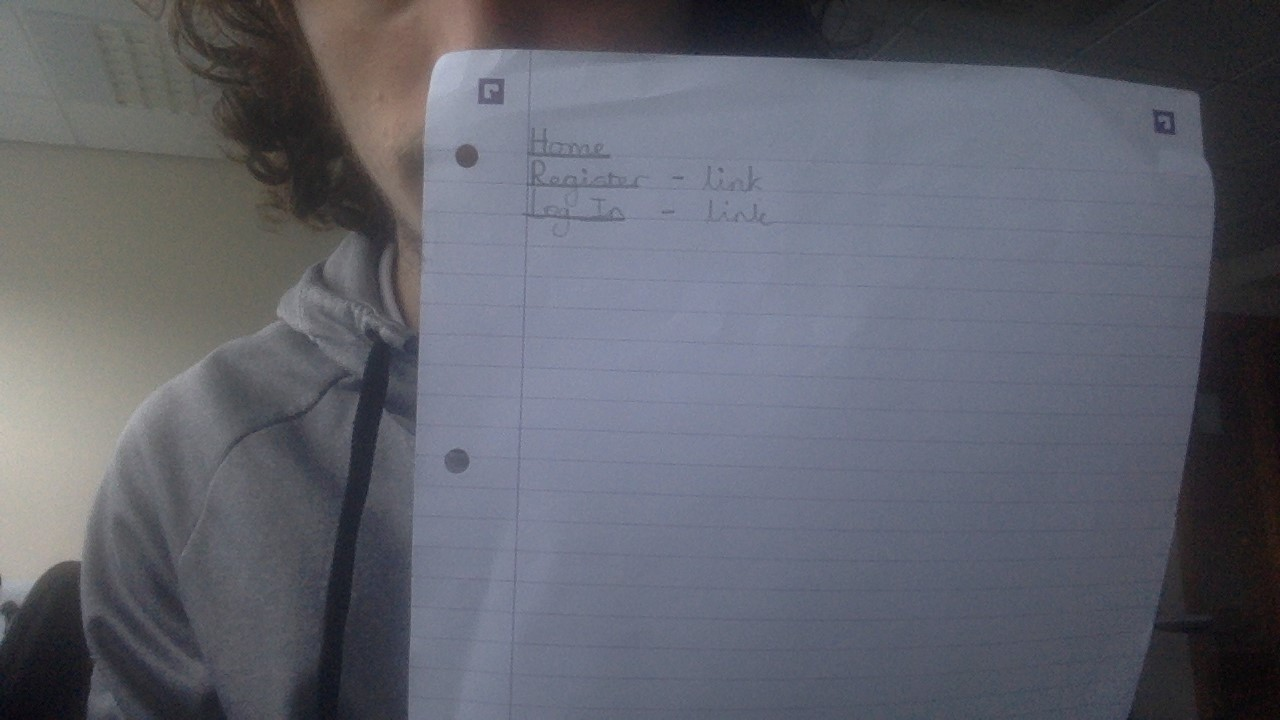 Home
Register - link
Log In - link